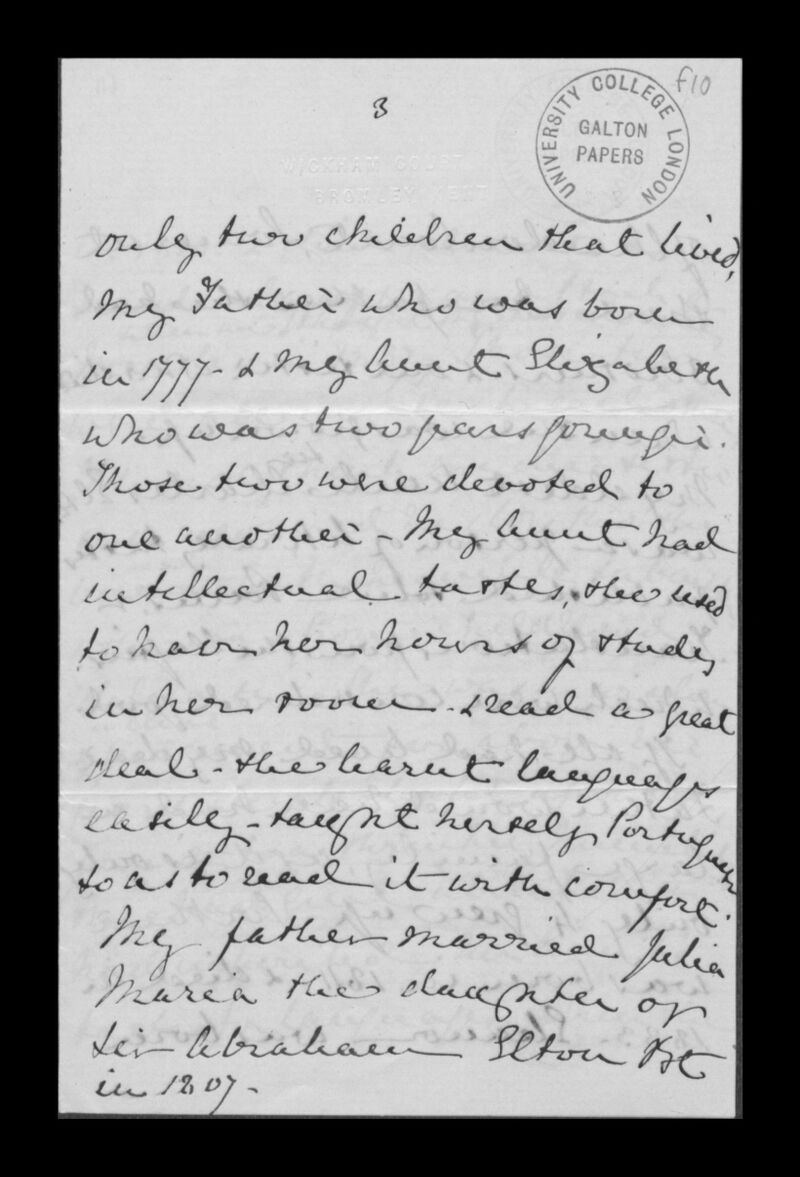 3
f10
UNIVERSITY COLLEGE LONDON
GALTON
PAPERS
WICKHAM COURT
BROMLEY KENT
only two children that lived,
My Father who was born
in 1777 - & My Aunt Elizabeth
who was two years younger.
Those two were devoted to
one another - My Aunt had
intellectual tastes, she used
to have her hours of study
in her room - & read a great
deal - she learnt languages
easily - taught herself Portuguese
so as to read it with comfort.
My father married Julia
Maria the daughter of
Sir Abraham Elton Bt
in 1807 -